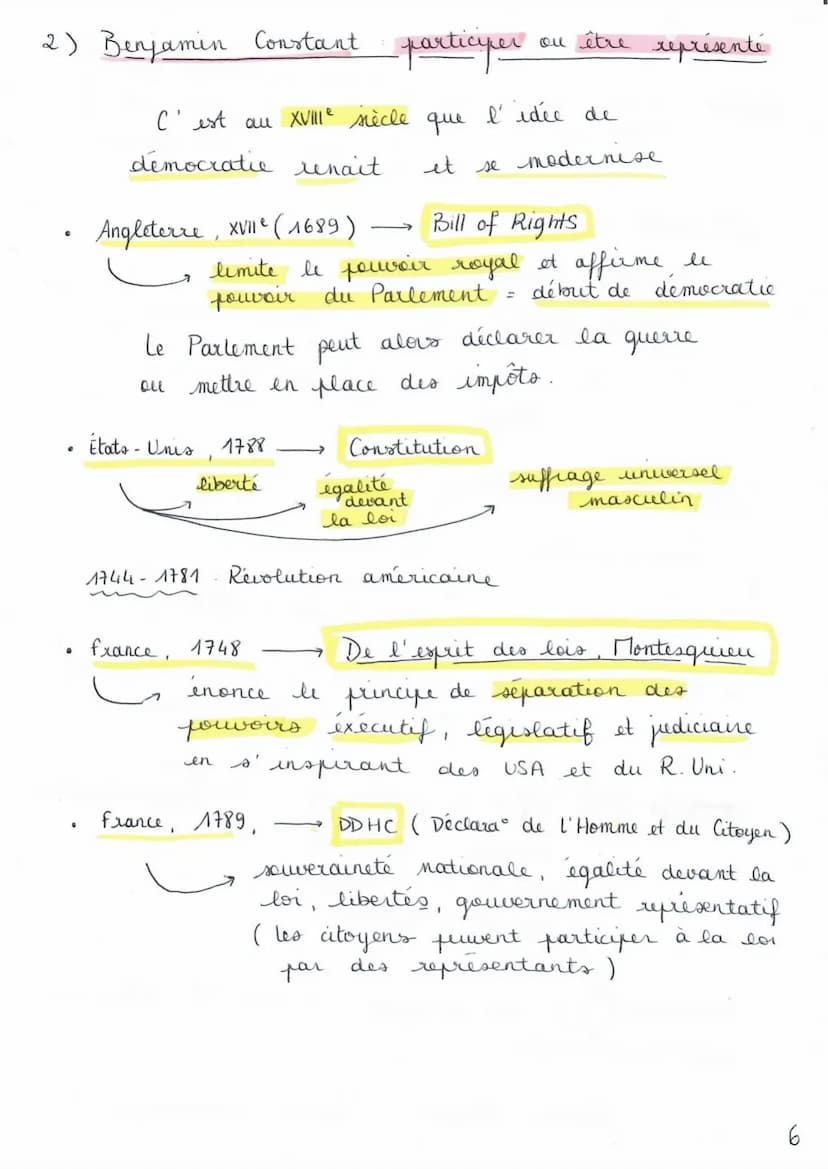 2) Benjamin Constant : participer ou être représenté
C'est au XVIIIᵉ siècle que l'idée de
démocratie renait et se modernise
• Angleterre, XVIIᵉ (1689) → Bill of Rights
limite le pouvoir royal et affirme le
pouvoir du Parlement = début de démocratie
Le Parlement peut alors déclarer la guerre
ou mettre en place des impôts.
• États-Unis, 1788 → Constitution
liberté égalité devant la loi suffrage universel masculin
1744-1781 : Révolution américaine
• France, 1748 → De l'esprit des lois, Montesquieu
énonce le principe de séparation des
pouvoirs éxécutif, législatif et judiciaire
en s'inspirant des USA et du R. Uni.
• France, 1789, → DDHC (Déclara° de l'Homme et du Citoyen)
souveraineté nationale, égalité devant la
loi, libertés, gouvernement représentatif
(les citoyens peuvent participer à la loi
par des représentants)
6